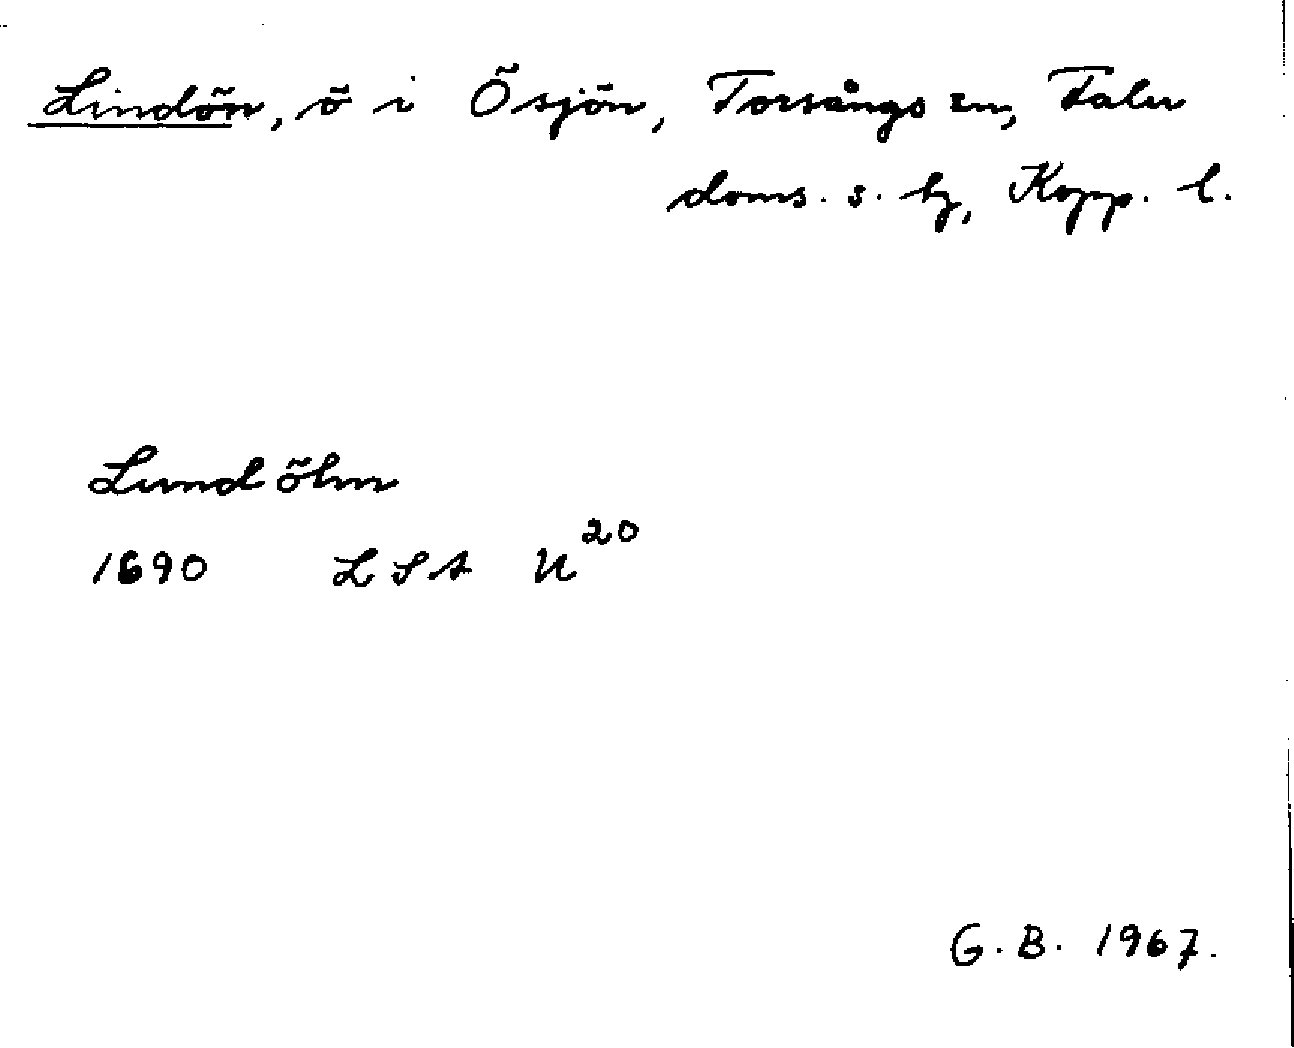 Lindön, ö i Ösjön, Torsångs sn, Falu
doms. s. hz, Kopp. l.
Lundöhn
1690 LSA U²⁰
G.B. 1967.